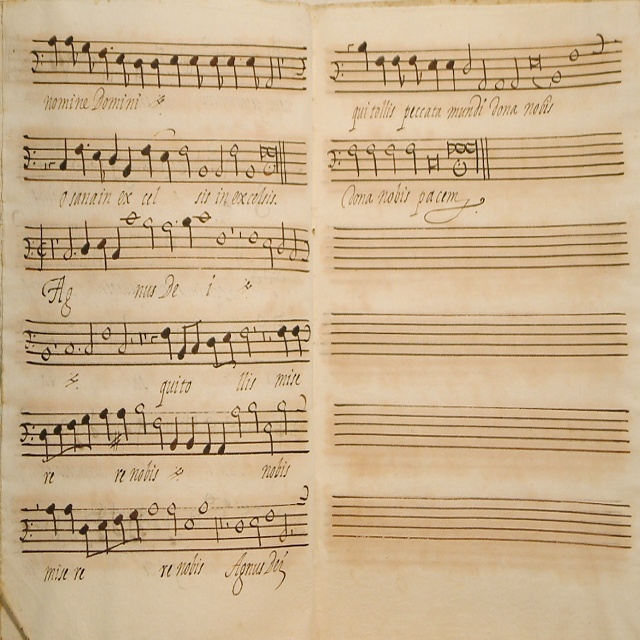 nomine Domini
osanain ex cel sis in excelsis.
Ag nus De i
qui to llis mise
re re nobis nobis
mise re re nobis Agnus Dei
qui tollis peccata mundi dona nobis
dona nobis pacem